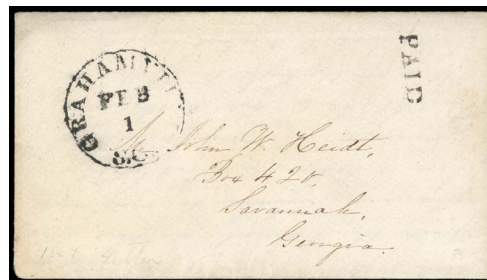 GRAHAMVILLE
FEB
1
S.C.
PAID
Mr. John W. Heidt,
Box 420,
Savannah,
Georgia.